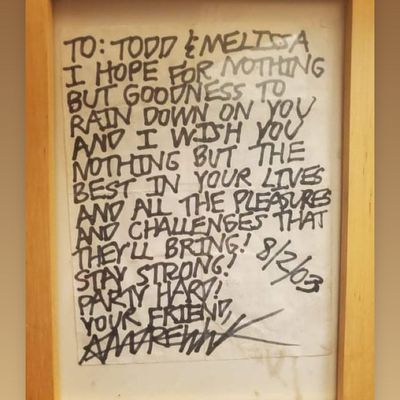 TO: TODD & MELISSA
I HOPE FOR NOTHING
BUT GOODNESS TO
RAIN DOWN ON YOU
AND I WISH YOU
NOTHING BUT THE
BEST IN YOUR LIVES
AND ALL THE PLEASURES
AND CHALLENGES THAT
THEY'LL BRING! 8/2/03
STAY STRONG!
PARTY HARD!
YOUR FRIEND,